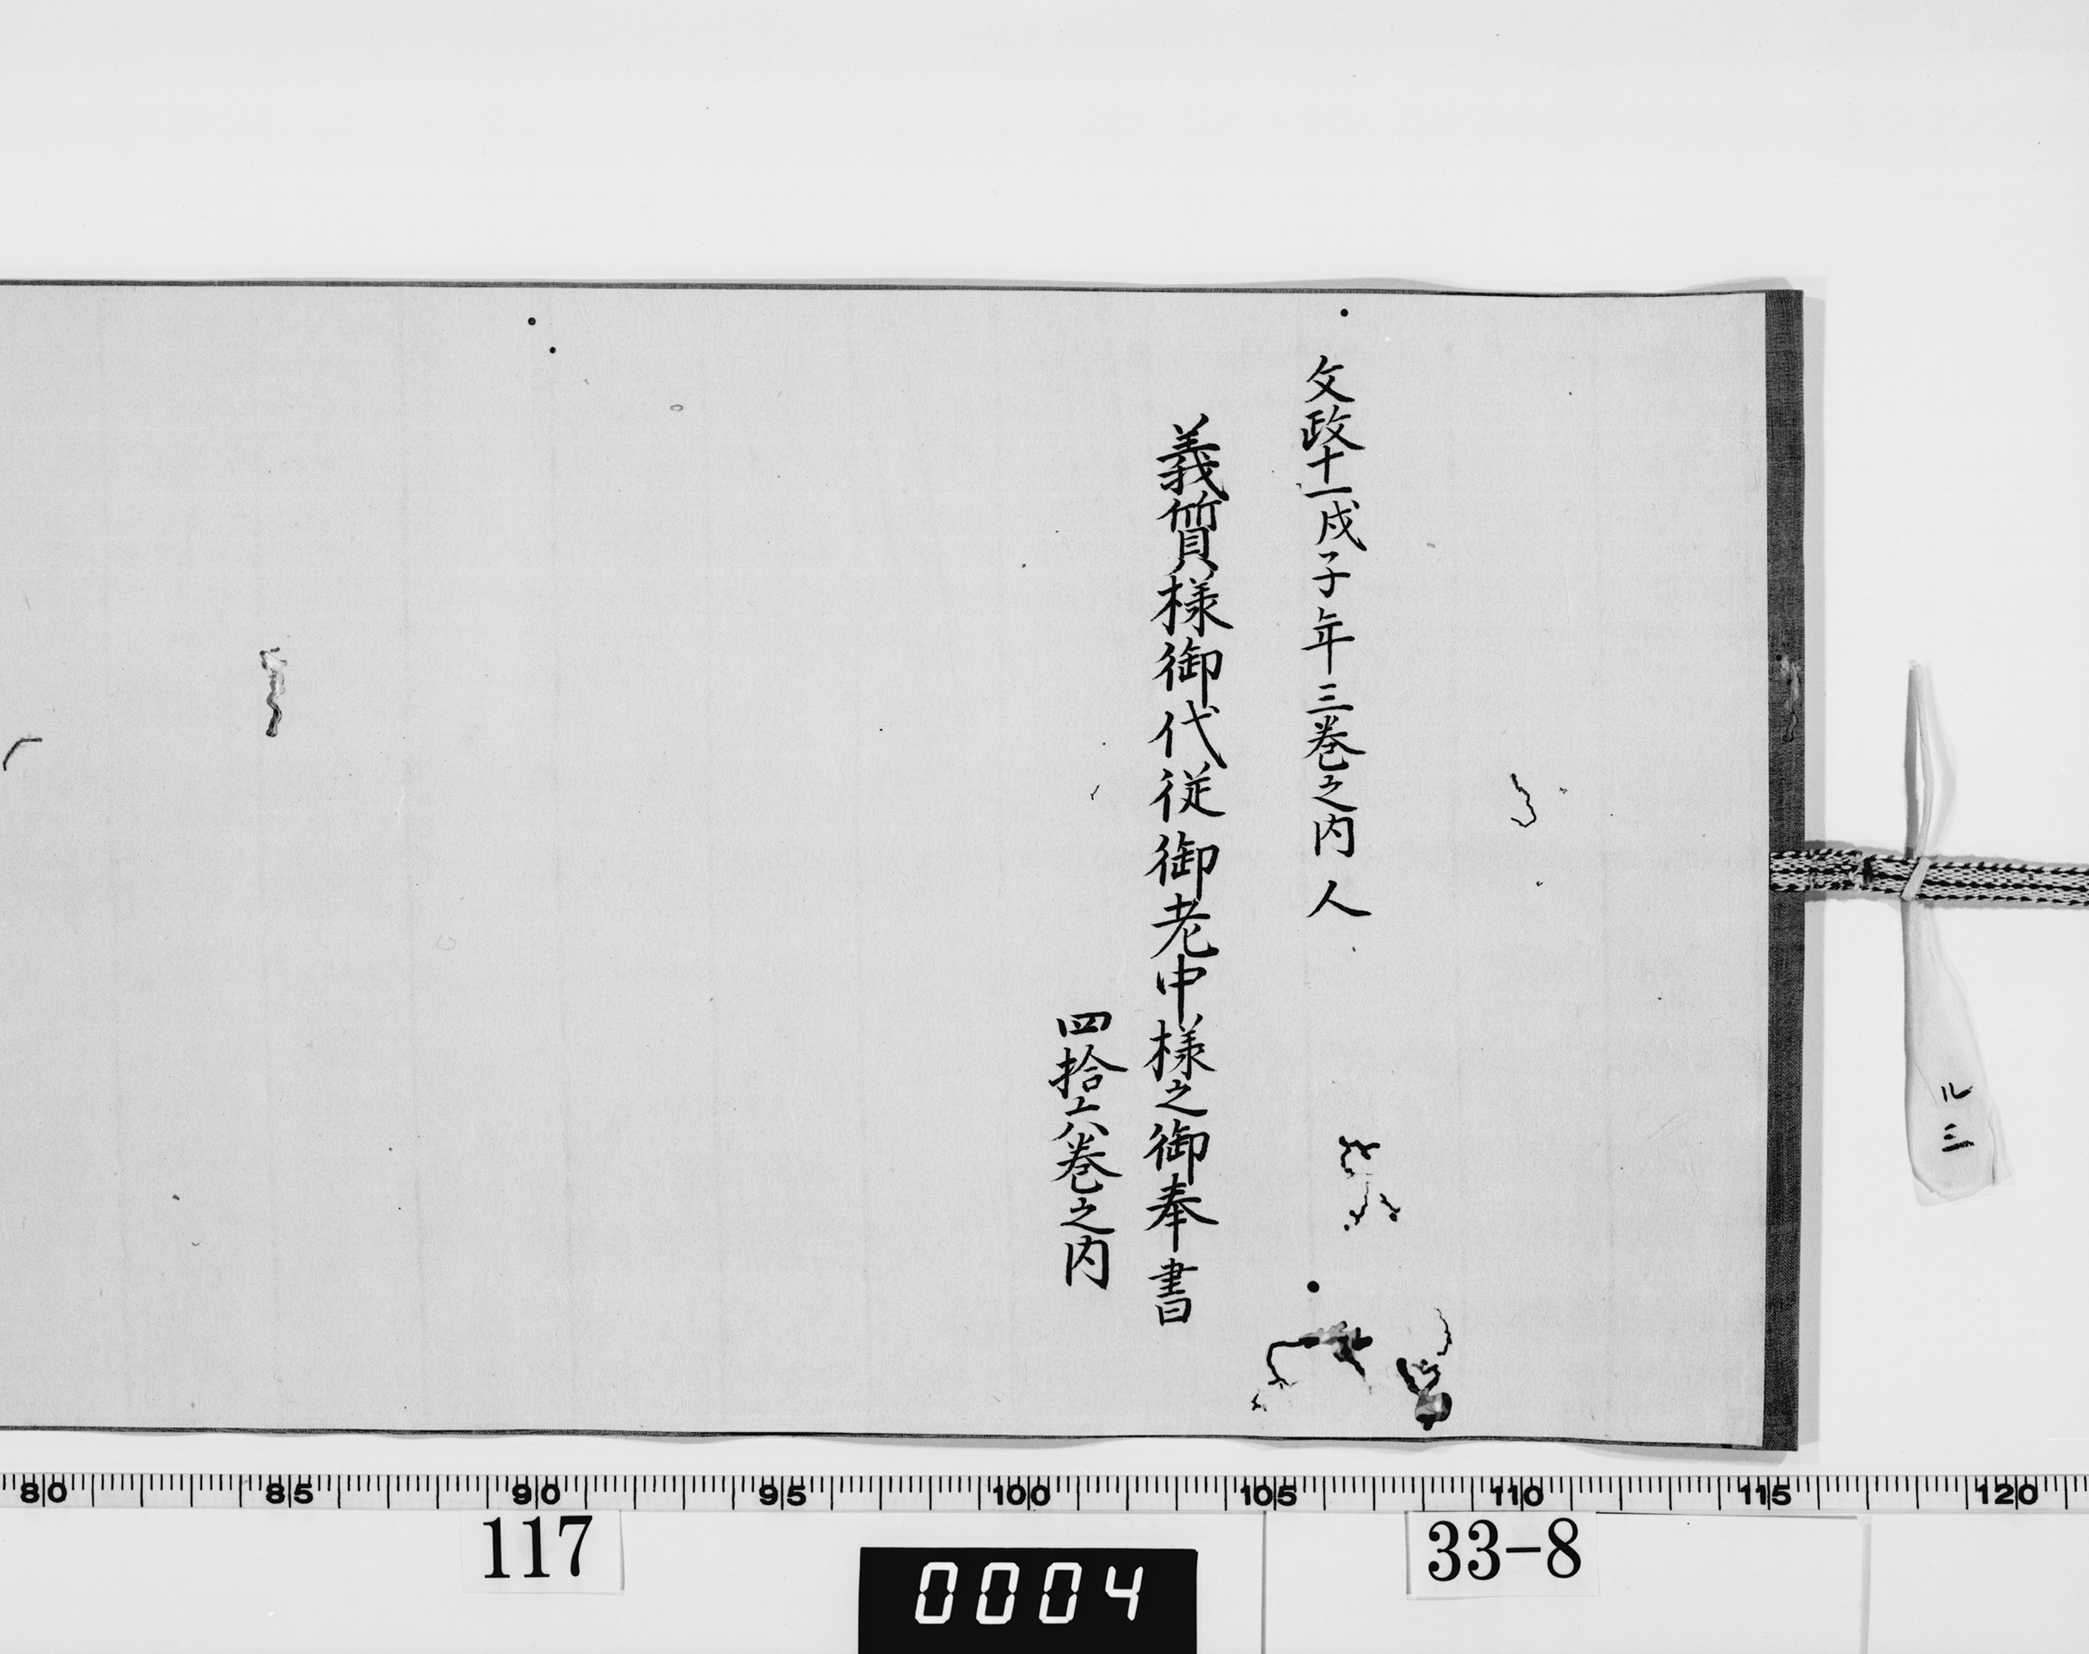 文政十一戊子年三巻之内 人
義質様御代従御老中様之御奉書
四拾六巻之内
ル三
80 85 90 95 100 105 110 115 120
117
33-8
0004